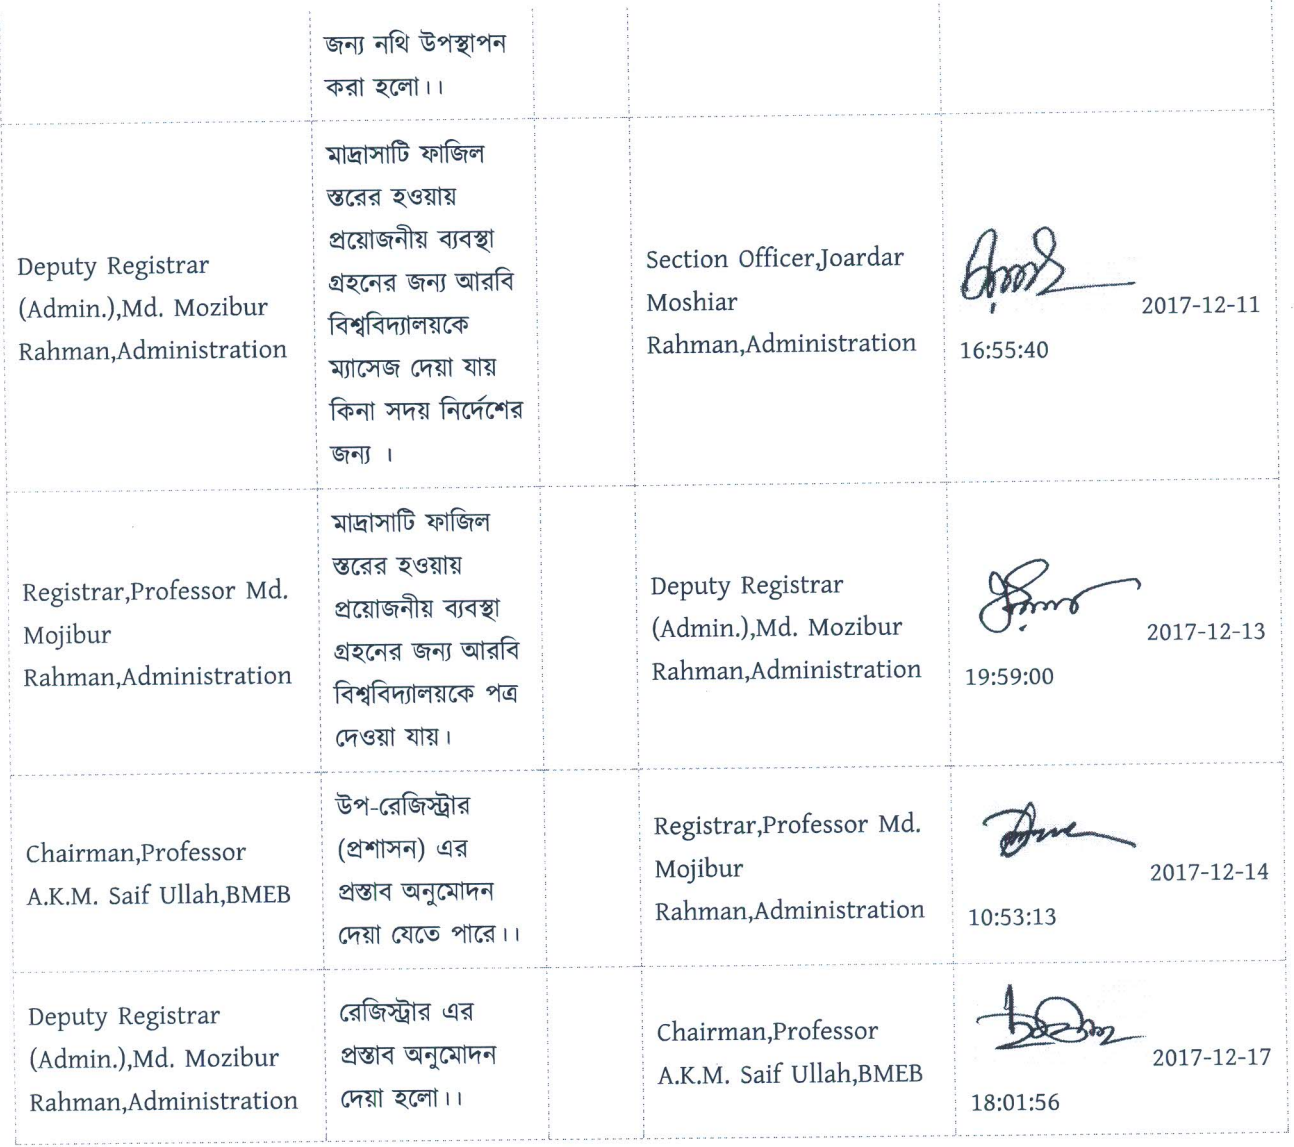 জন্য নথি উপস্থাপন
করা হলো।।
Deputy Registrar
(Admin.),Md. Mozibur
Rahman,Administration
মাদ্রাসাটি ফাজিল
স্তরের হওয়ায়
প্রয়োজনীয় ব্যবস্থা
গ্রহনের জন্য আরবি
বিশ্ববিদ্যালয়কে
ম্যাসেজ দেয়া যায়
কিনা সদয় নির্দেশের
জন্য ।
Section Officer,Joardar
Moshiar
Rahman,Administration
2017-12-11
16:55:40
Registrar,Professor Md.
Mojibur
Rahman,Administration
মাদ্রাসাটি ফাজিল
স্তরের হওয়ায়
প্রয়োজনীয় ব্যবস্থা
গ্রহনের জন্য আরবি
বিশ্ববিদ্যালয়কে পত্র
দেওয়া যায়।
Deputy Registrar
(Admin.),Md. Mozibur
Rahman,Administration
2017-12-13
19:59:00
Chairman,Professor
A.K.M. Saif Ullah,BMEB
উপ-রেজিস্ট্রার
(প্রশাসন) এর
প্রস্তাব অনুমোদন
দেয়া যেতে পারে।।
Registrar,Professor Md.
Mojibur
Rahman,Administration
2017-12-14
10:53:13
Deputy Registrar
(Admin.),Md. Mozibur
Rahman,Administration
রেজিস্ট্রার এর
প্রস্তাব অনুমোদন
দেয়া হলো।।
Chairman,Professor
A.K.M. Saif Ullah,BMEB
2017-12-17
18:01:56